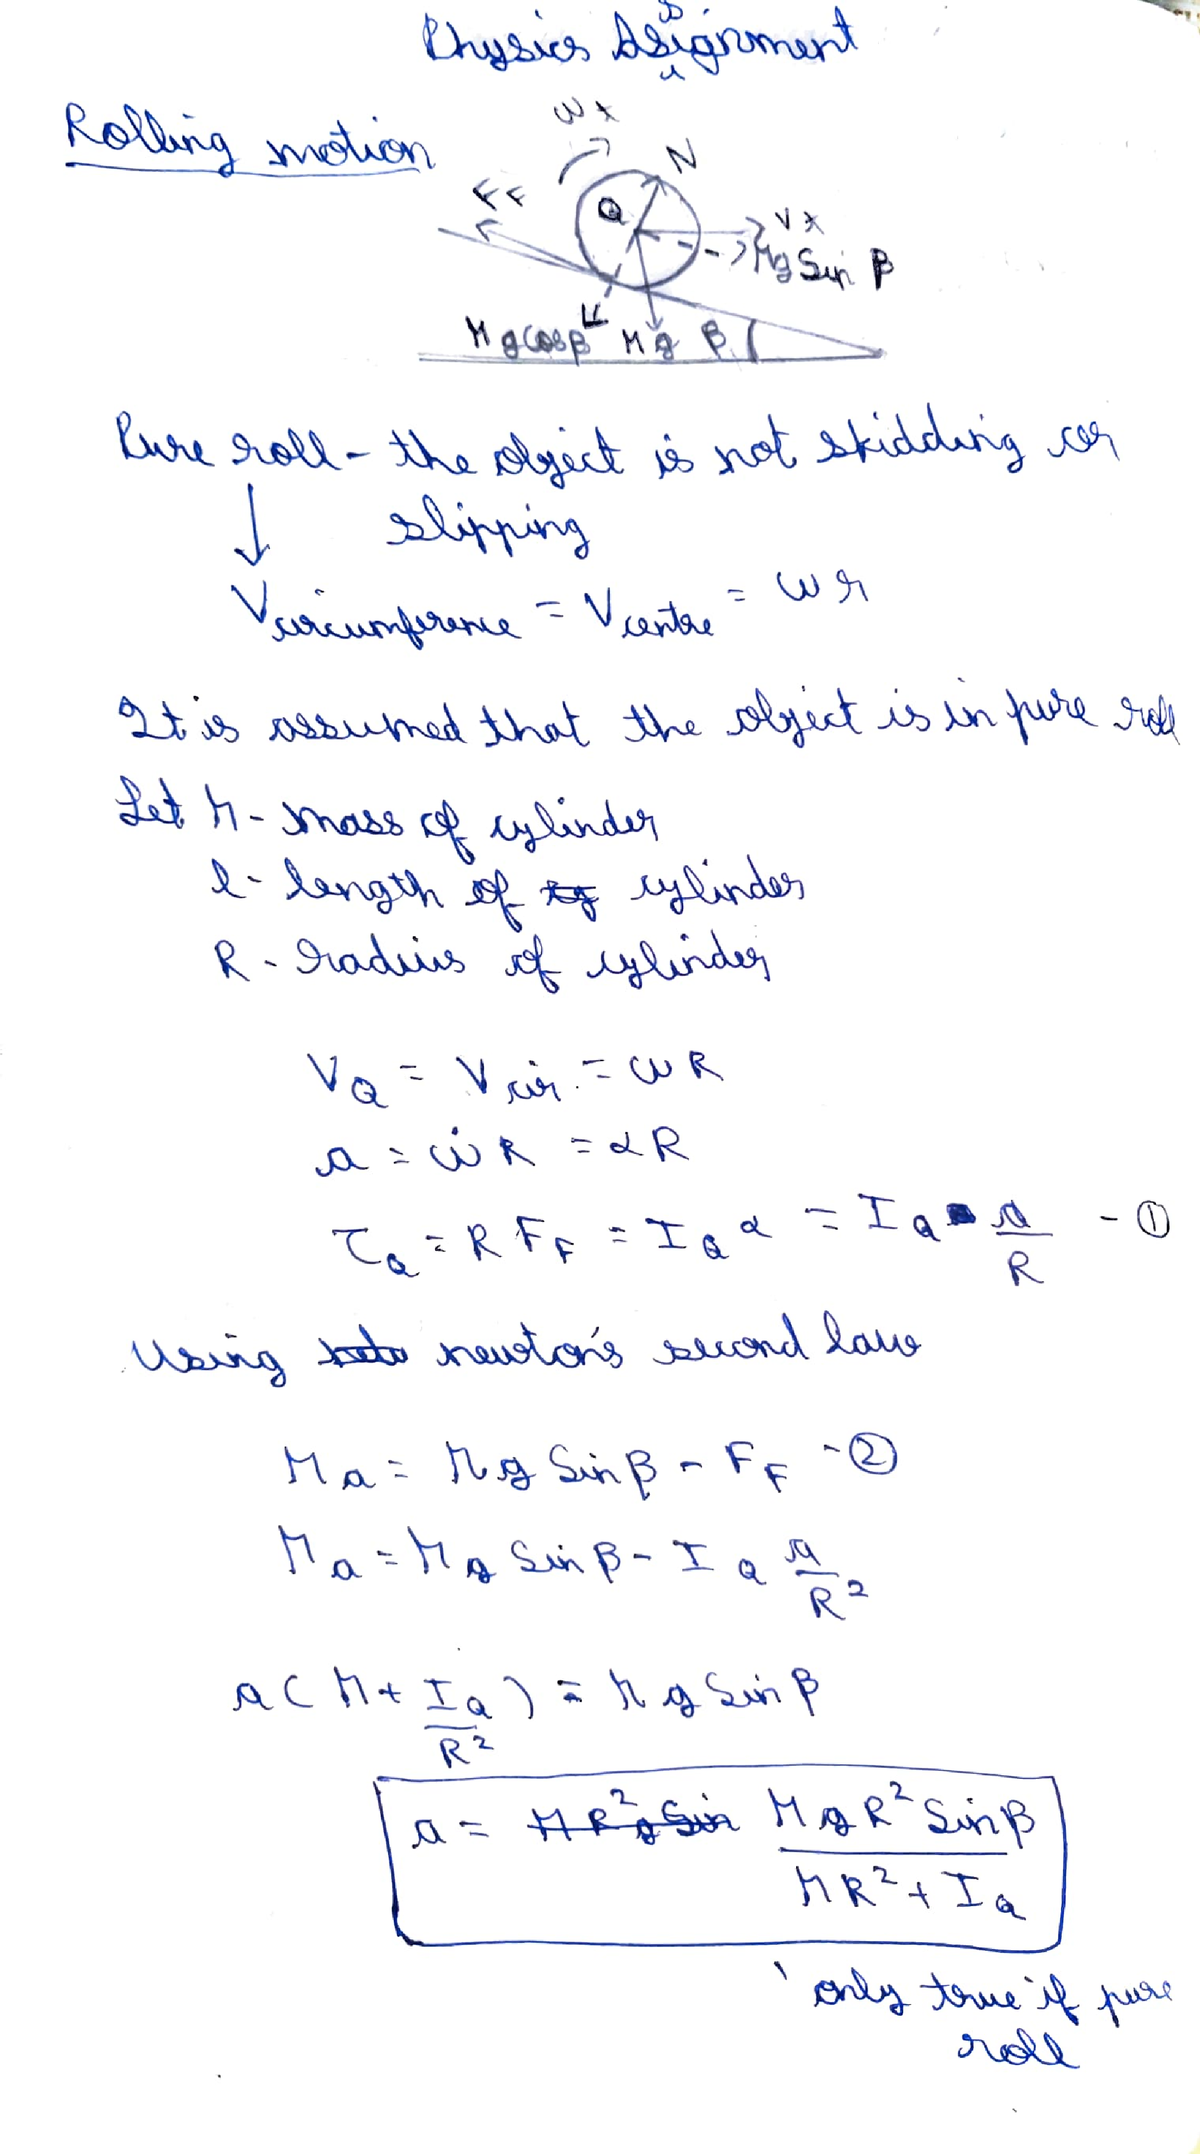 Physics Assignment
Rolling motion
ω x
N
F F
Q
V x
Mg Sin β
Mg cos β Mg β
Pure roll - the object is not skidding or
slipping
V circumference = V centre = ω r
It is assumed that the object is in pure roll
Let M - mass of cylinder
l - length of cylinder
R - radius of cylinder
V_Q = V cir. = ω R
a = ω̇ R = α R
τ_Q = R F_F = I_Q α = I_Q a/R - ①
Using newton's second law
Ma = Mg Sin β - F_F - ②
Ma = Mg Sin β - I_Q a/R²
a ( M + I_Q/R² ) = Mg Sin β
a = MgR² Sin β / MR² + I_Q
only true if pure
roll